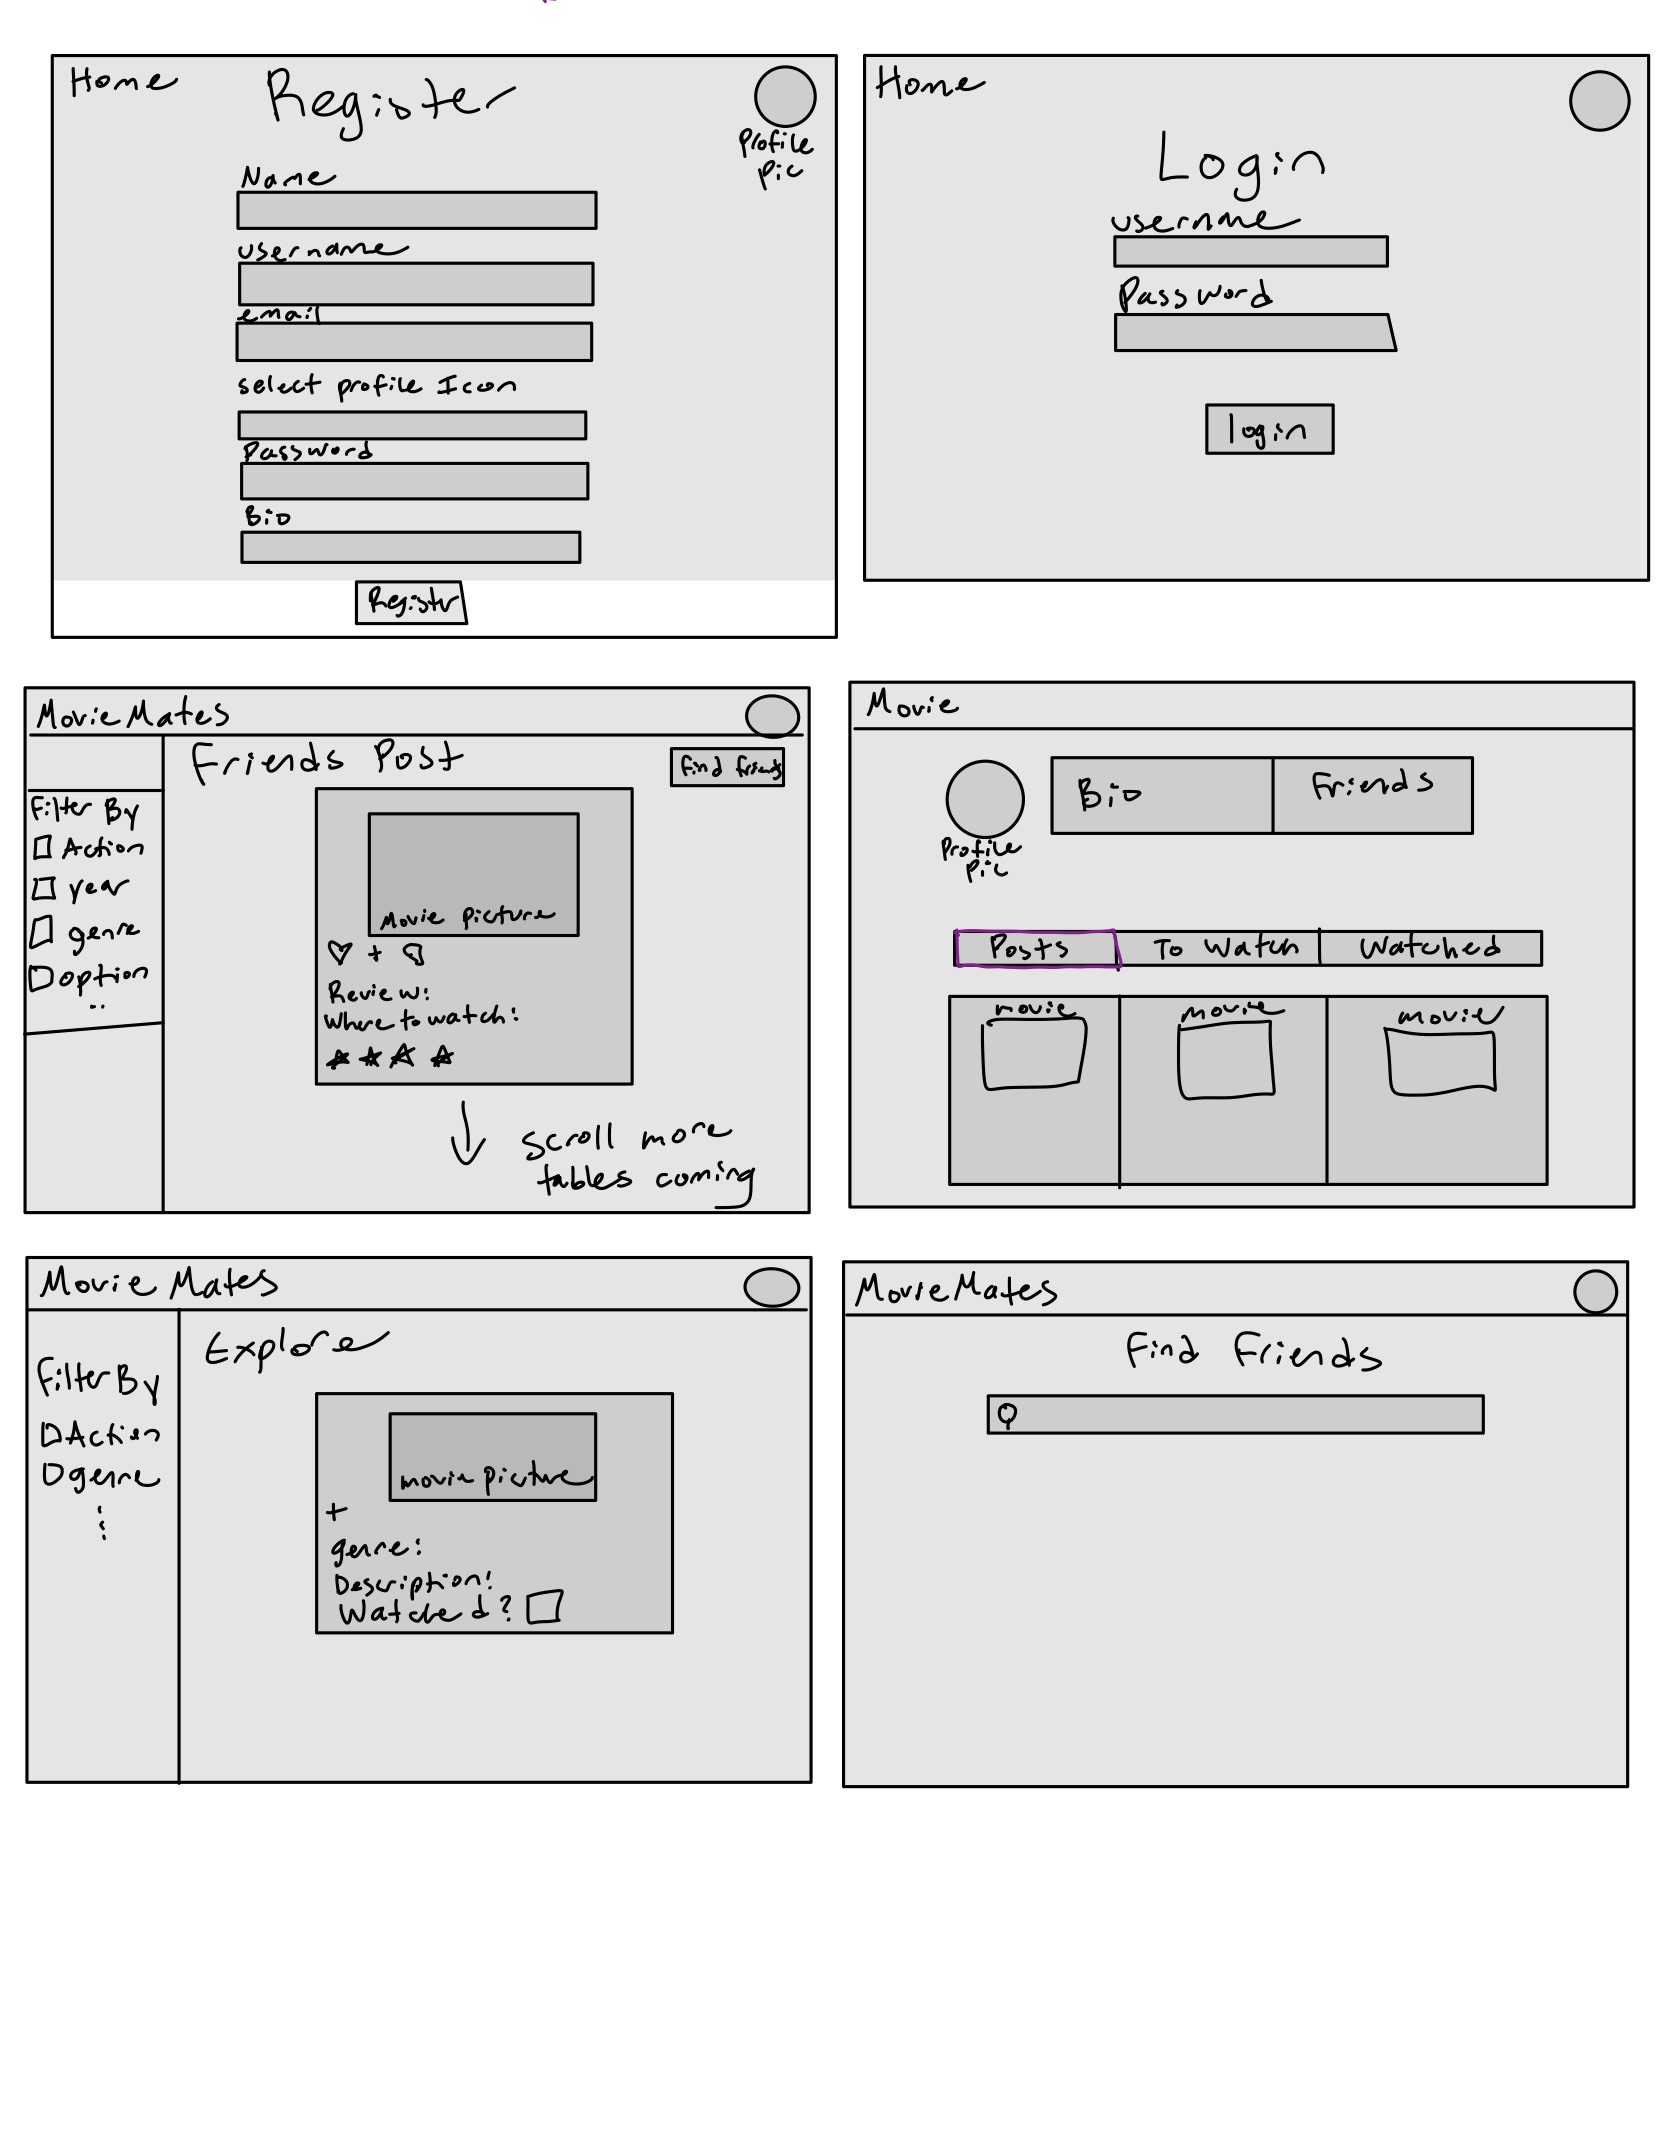 Home
Register
Profile
Pic
Name
username
email
select profile Icon
Password
Bio
Registr
Home
Login
username
Password
login
MovieMates
Friends Post
find friends
Filter By
Action
year
genre
option
..
Movie picture
+
Review:
Where to watch:
scroll more
tables coming
Movie
Bio
Friends
Profile
Pic
Posts
To Watch
Watched
movie
movie
movie
Movie Mates
Explore
Filter By
Action
genre
movie picture
+
genre:
Description:
Watched?
MovieMates
Find Friends